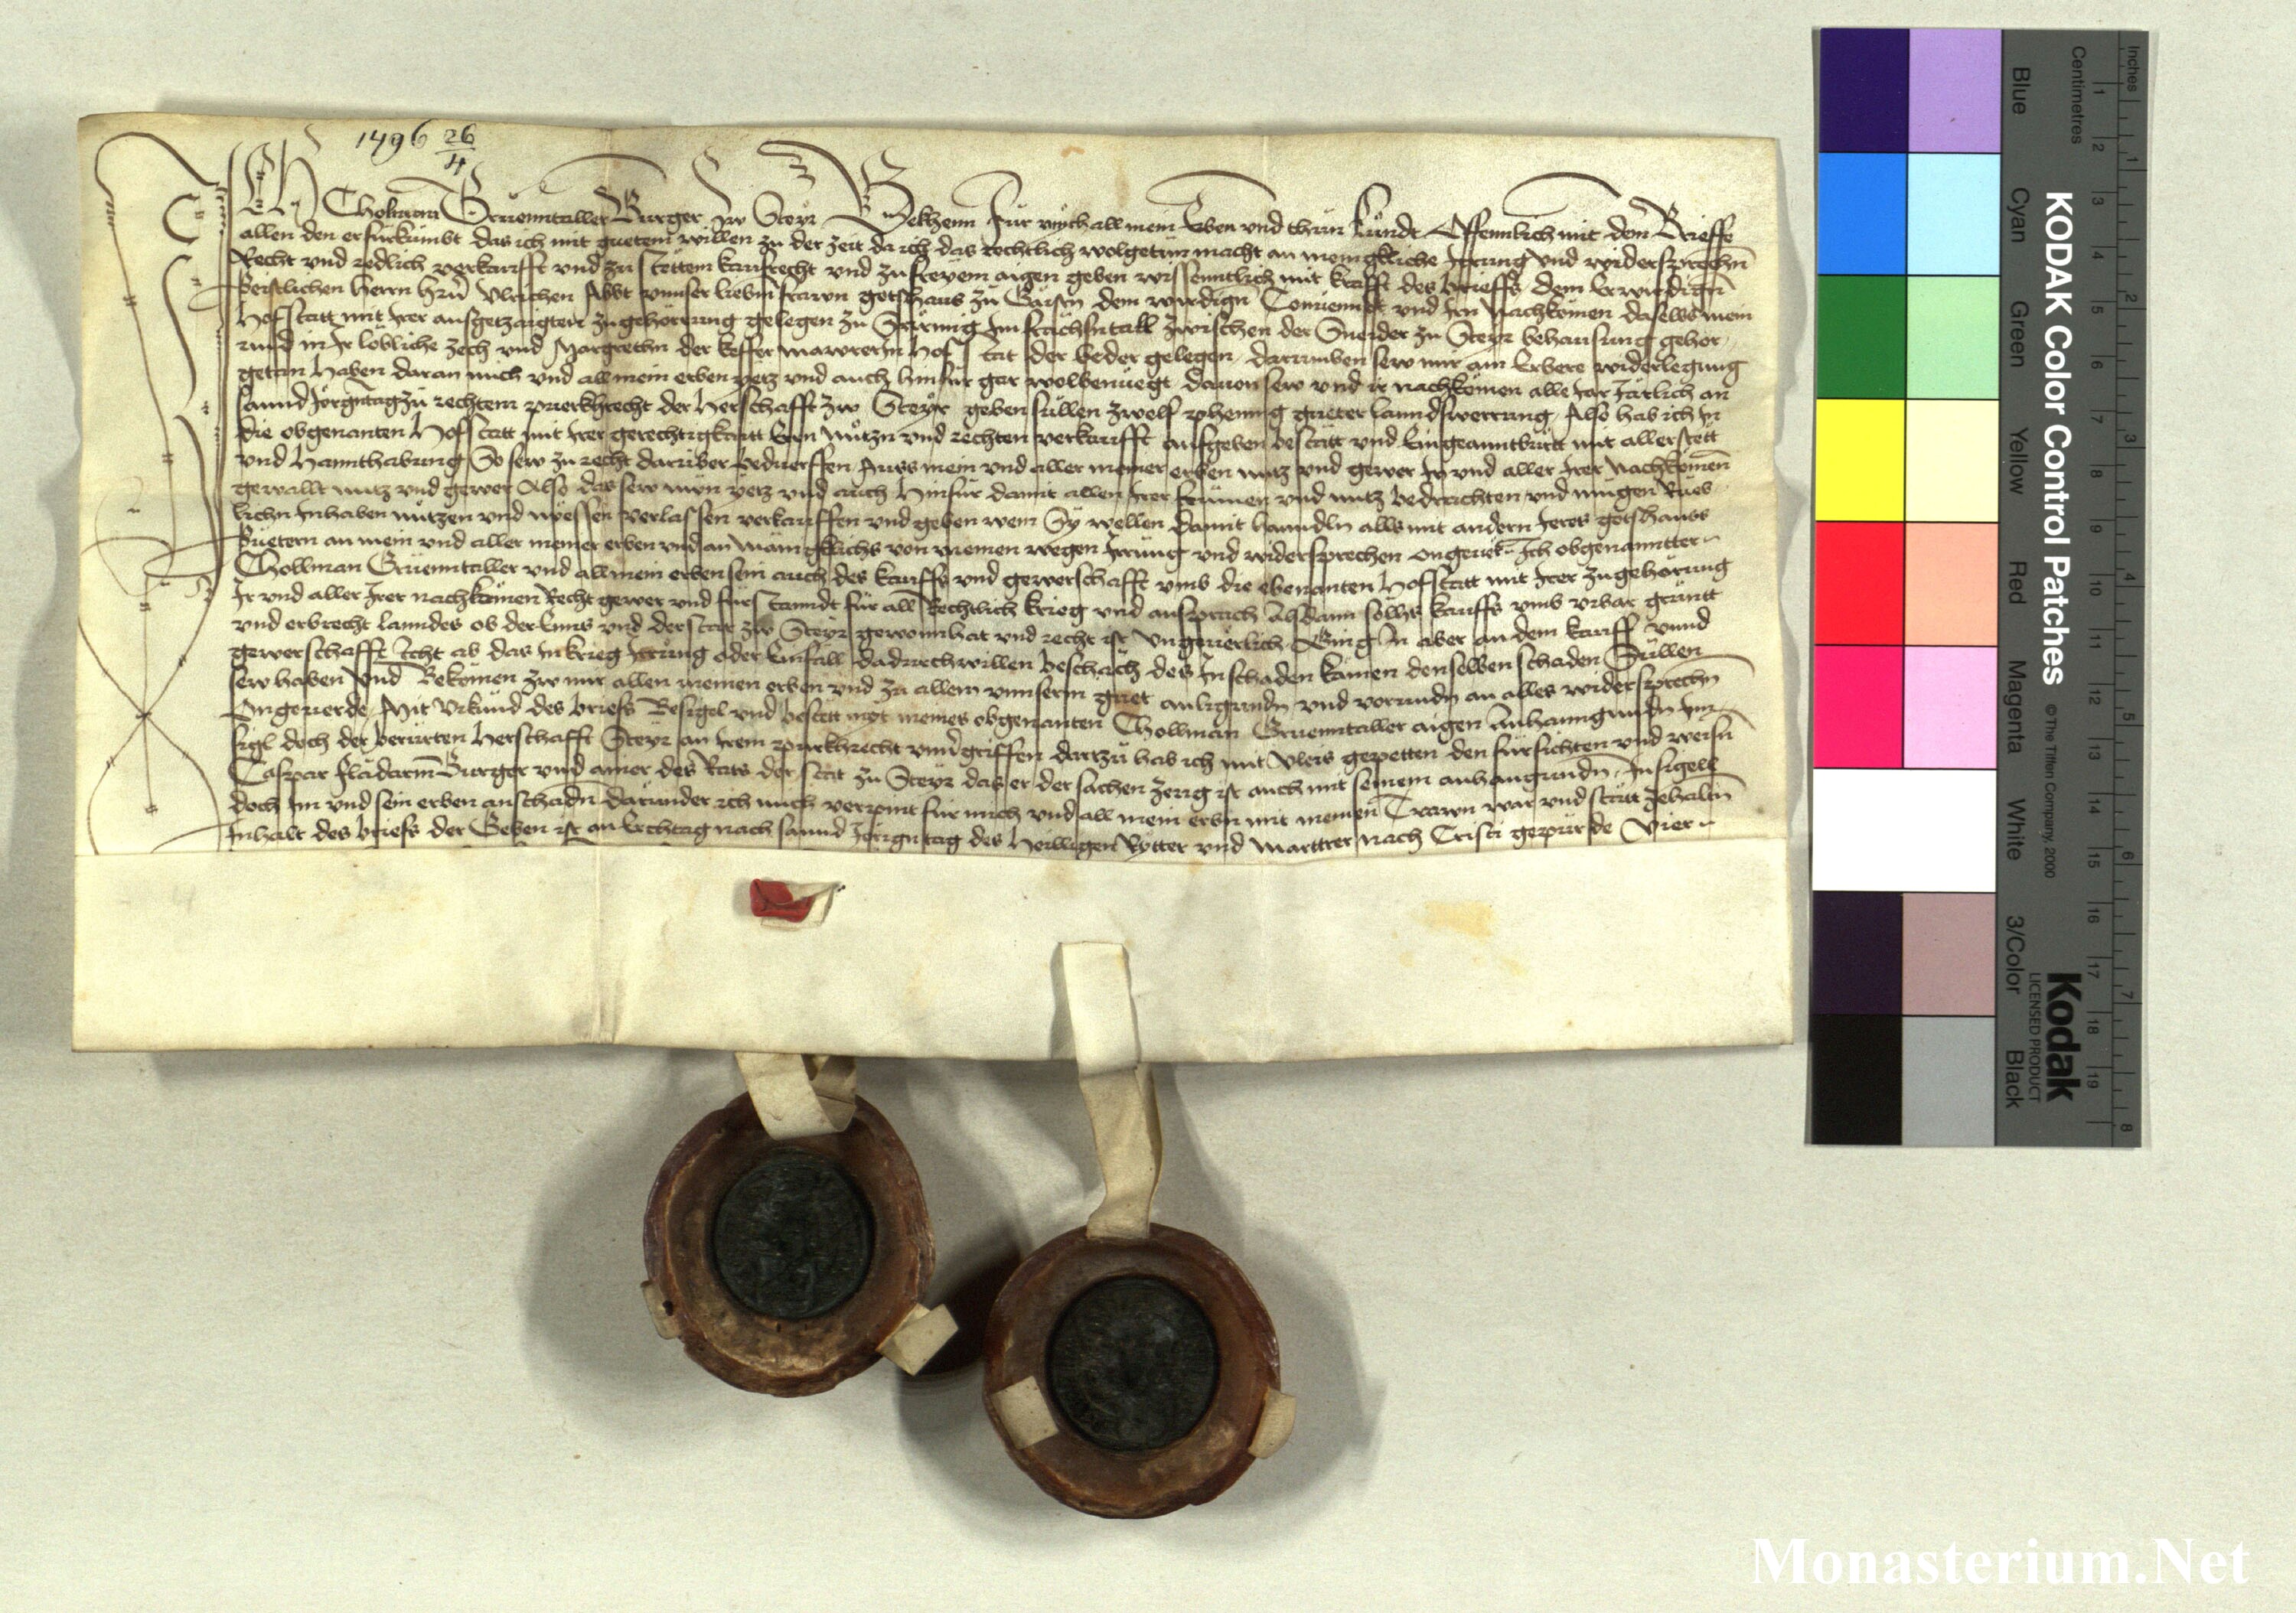 1496 26/4
Ich Cholman Gruenntaller Burger zw Steyr Bekhenn für mich all mein Erben vnd thun kundt Offennlich mit dem Brieffe
allen den er fürkümbt das ich mit guetem willen zu der zeit da ich das rechtlich wolgetun macht an menigkliche Irrung vnd widersprechn
Recht vnd redlich verkaufft vnd zu stettem kaufrecht vnd zu freyem aigen geben wissenntlich mit krafft des brieffs dem Erwirdign
Geistlichen herrn hern Vlrichen Abbt vnnser liebm frawn gotshaus zu Gärstn dem wirdign Conuennt vnd Irn Nachkomen daselbs mein
Hofstatt mit Irer ausgetzaigten zugehorung gelegen zu im tall zwischen der Sneider zu Steyr behausung gehor
vnd in Ir löbliche zech vnd Margrethn der mawrerin Hofstat der beder gelegen darumben sew mir ain Erbere widerlegung
getan haben daran mich vnd all mein erben yetz vnd auch hinfür gar wolbenüegt dauon sew vnd ir nachkomen alle Jar Järlich an
sannd Jörgntag zu rechtem purkhrecht der Herschafft zw Steyr geben süllen zwelf phening gueter lanndswerrung Also hab ich In
die obgenanten Hofstatt mit Irer gerechtigkaitt Ern nützn vnd rechten verkaufft aufgeben bestätt vnd Eingeanntburtt mit aller stett
vnd Hannthabung So sew zu recht darüber bedürffen Auss mein vnd aller meiner erben nutz vnd gewer In vnd aller Irer Nachkomen
gewallt nutz vnd gewer Also das sew nun yetz vnd auch hinfür damit allen Irer frumen vnd nutz betrachten vnd mügen Rüeb
lichn Innhaben nützen vnd niessen verlassen verkauffen vnd geben wem Sy wellen damit hanndln alls mit andern Ieres gotshauss
Guetern an mein vnd aller meiner erben vnd an mänigklichs von meinen wegen Irrung vnd widersprechen Ich obgenanntter
Chollman Gruenntaller vnd all mein erben sein auch des kauffs vnd gewerschafft vmb die ebenanten Hofstatt mit Irer zugehorung
Ir vnd aller Irer nachkomen Recht gewer vnd fürstanndt für all Rechtlich krieg vnd ansprach Als dann söllhs kauffs vmb vrbar gründt
vnd erbrecht lanndes ob der Enns vnd der stat zw Steyr gewonnhat vnd recht ist vngeuerlich Ging In aber an dem kauff vnnd
gewerschafft Icht ab das In krieg Irrung oder Einfall dadurch willen beschäch des In schaden kämen denselben schaden Süllen
sew haben vnd Bekomen zw mir allen meinen erben vnd zu allem vnnserm guet anligundn vnd varundn an alles widersprechn
Ungeuerde Mit Vrkund des briefs Besigel vnd bestätt mit meines obgenanten Chollman Gruenntaller aigen Anhanngundn In
sigl doch der berürten Herschafft Steyr an Irem purkhrecht vnuergriffen dartzu hab ich mit vleis gepetten den fürsichten vnd weisn
Caspar flädarm Burger vnd ainer des Rats der stat zu Steyr das er der sachen zeug ist auch mit seinem anhangundn Insigell
doch Im vnd sein erben an schadn darunder ich mich verpint für mich vnd all mein erbn mit meinen Trawn war vnd stätt zehalltn
Inhalt des briefs der Geben ist an Erchtag nach sannd Jörign tag des Heilligen Rytter vnd Marttrer Nach Cristi gepürde Vier
KODAK Color Control Patches
© The Tiffen Company, 2000
Kodak
LICENSED PRODUCT
Blue Cyan Green Yellow Red Magenta White 3/Color Black
Inches 1 2 3 4 5 6 7 8
Centimetres 1 2 3 4 5 6 7 8 9 10 11 12 13 14 15 16 17 18 19
Monasterium.Net